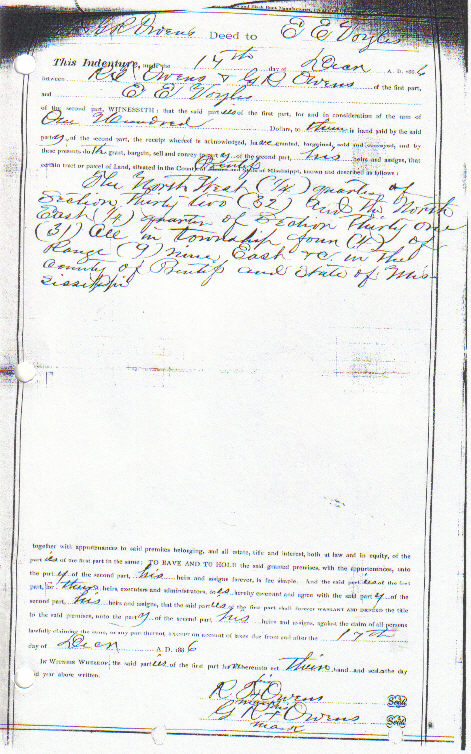 G R Owens Deed to E E Voyles
This Indenture, made the 17th day of Decm A. D. 1886
between R F Owens & G R Owens of the first part,
and E E Voyles
of the second part, WITNESSETH: that the said parties of the first part, for and in consideration of the sum of
One Hundred Dollars, to them in hand paid by the said
party of the second part, the receipt whereof is acknowledged, have granted, bargained, sold and conveyed, and by
these presents doth grant, bargain, sell and convey to party of the second part, his heirs and assigns, that
certain tract or parcel of Land, situated in the County of Prentiss and State of Mississippi, known and described as follows:
The North West (1/4) quarter of
Section thirty two (32) and the North
East (1/4) quarter of Section thirty one
(31) all in township four (4) of
Range (9) nine East &c in the
County of Prentiss and State of Mis-
sissippi
together with appurtenances to said premises belonging, and all estate, title and interest, both at law and in equity, of the
parties of the first part in the same; TO HAVE AND TO HOLD the said granted premises, with the appurtenances, unto
the party of the second part, his heirs and assigns forever, in fee simple. And the said parties of the first
part, for their heirs, executors and administrators, do hereby covenant and agree with the said party of the
second part, his heirs and assigns, that the said parties of the first part shall forever WARRANT AND DEFEND the title
to the said premises, unto the party of the second part, his heirs and assigns, against the claim of all persons
lawfully claiming the same, or any part thereof, except on account of taxes due from and after the 17th
day of Decm A. D. 1886
IN WITNESS WHEREOF, the said parties of the first part have hereunto set their hand and seal the day
and year above written.
his
R F X Owens Seal
mark
G R X Owens Seal
mark